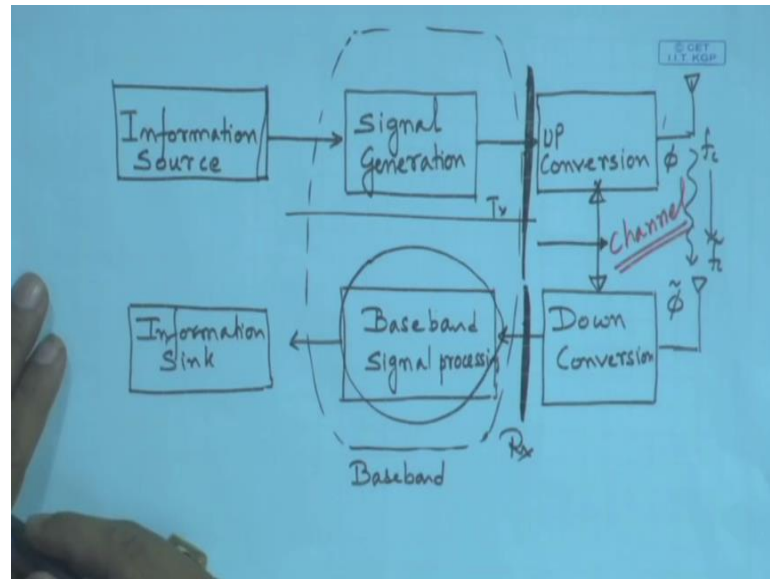 © CET
I.I.T. KGP
Information
Source
Signal
Generation
UP
Conversion
ϕ
f_c
Tx
Channel
f̃_c
ϕ̃
Information
Sink
Baseband
Signal processin
Down
Conversion
Rx
Baseband